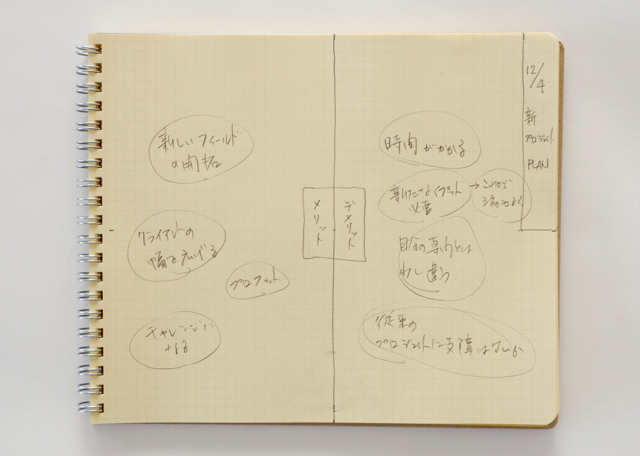 12/4
新
プロジェクト
PLAN
メリット
デメリット
新しいフィールド
の開拓
クライアントの
幅を広げる
プロフィット
チャレンジに
なる
時間がかかる
新たなインプット
必要
→
自分の専門とは
少し違う
従来の
プロジェクトに支障はないか